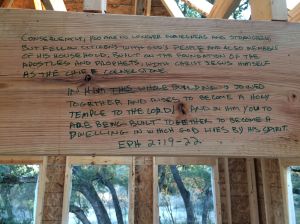 CONSEQUENTLY, YOU ARE NO LONGER FOREIGNERS AND STRANGERS,
BUT FELLOW CITIZENS WITH GOD'S PEOPLE AND ALSO MEMBERS
OF HIS HOUSEHOLD, BUILT ON THE FOUNDATION OF THE
APOSTLES AND PROPHETS, WITH CHRIST JESUS HIMSELF
AS THE CHIEF CORNERSTONE.
IN HIM THIS WHOLE BUILDING IS JOINED
TOGETHER AND RISES TO BECOME A HOLY
TEMPLE TO THE LORD! AND IN HIM YOU TO
ARE BEING BUILT TOGETHER TO BECOME A
DWELLING IN WHICH GOD LIVES BY HIS SPIRIT.
EPH 2:19-22